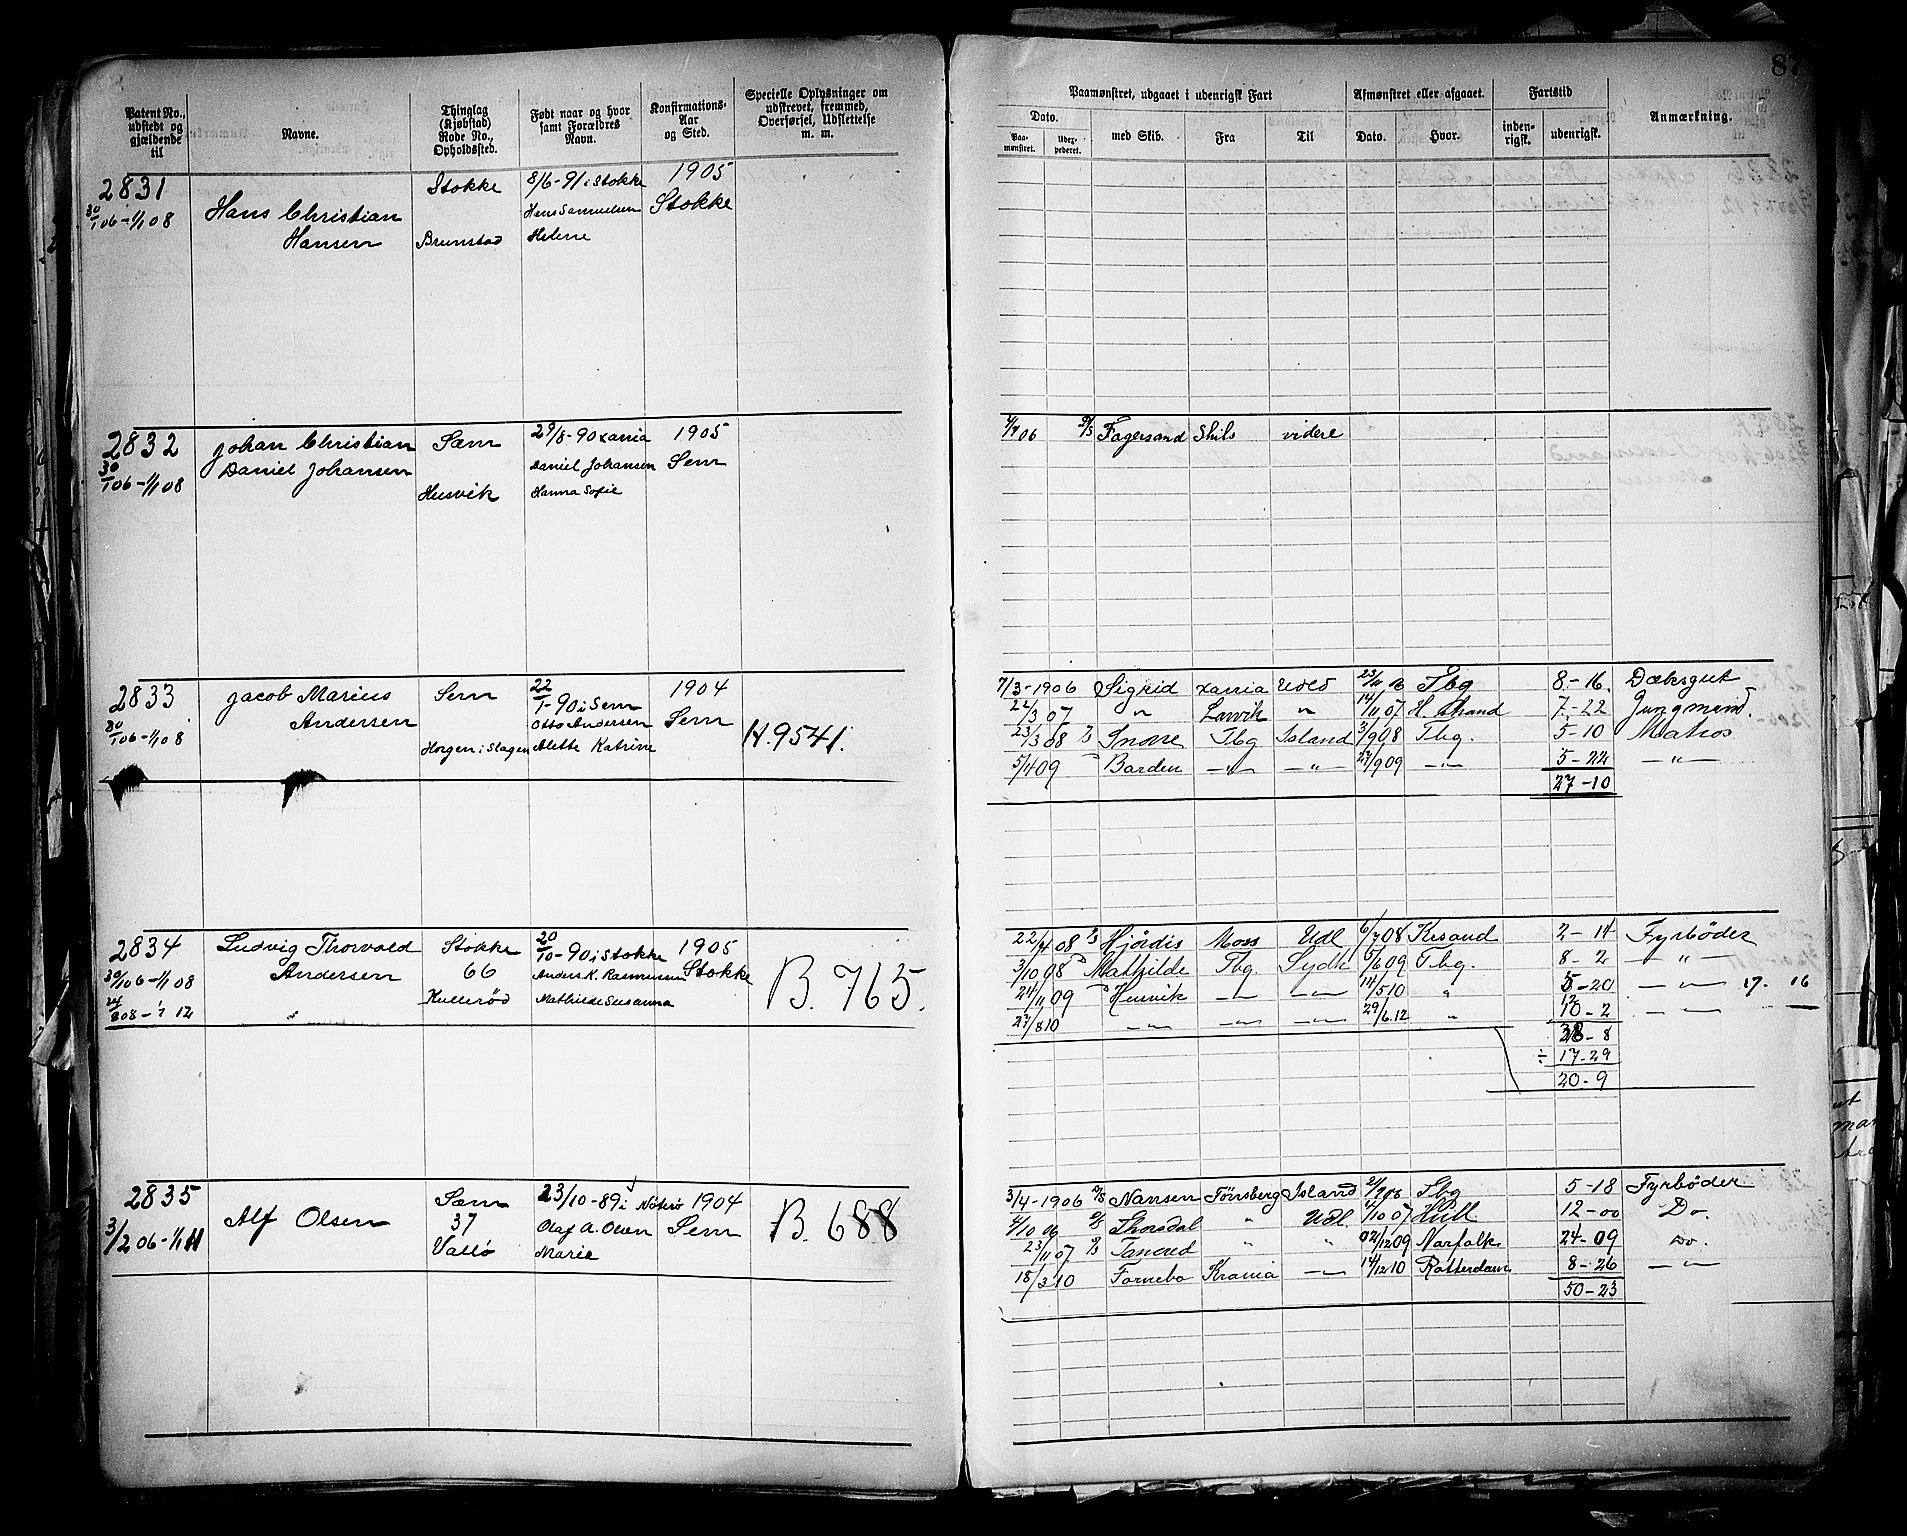 87
Patent No., udstedt og gjældende til
Navne.
Thinglag (Kjøbstad) Rode No., Opholdssted.
Født naar og hvor samt Forældres Navn.
Konfirmations-Aar og Sted.
Specielle Oplysninger om udskrevet, fremmed, Overførsel, Udslettelse m. m.
Paamønstret, udgaaet i udenrigsk Fart
Afmønstret eller afgaaet.
Fartstid
Anmærkning.
Dato.
Paa-mønstret.
med Skib.
Fra
Til
Dato.
Hvor.
inden-rigsk.
udenrigsk.
2831 Stokke 8/6-91 i Stokke 1905
30/1 06-1/1 08 Hans Christian Hans Samuelsen Stokke
Hansen Brunstad Helene
2832 Johan Christian Sæm 29/8-90 Xania 1905
30/1 06-1/1 08 Daniel Johansen Daniel Johansen Sem
Husvik Hanna Sofie
06 Fagersand Shils videre
2833 Jacob Marius Sem 22/1-90 i Sem 1904
30/1 06-1/1 08 Andersen Otto Andersen Sem
Horgen i Slagen Alette Katrine H. 9541.
7/3-1906 Sigrid Xania Udld Tbg 8-16. Dæksgut
22/3 07 " Larvik " 14/11 07 H. strand 7-22 Jungmand.
23/3 08 Snorre Tbg Island 3/9 08 Tbg. 5-10 Matros
5/4 09 Barden —"— —"— 27/9 09 —"— 5-22 —"—
27-10
2834 Ludvig Thorvald Stokke 20/10-90 i Stokke 1905
30/1 06-1/1 08 Andersen 66 Anders K. Rasmussen Stokke
24/8 08-1/1 12 Hullerød Mathilde Susanna B. 765.
22/4 08 Hjørdis Moss Udl 6/7 08 Krsand 2-14 Fyrbøder
3/10 08 Mathilde Tbg Sydh 5/6 09 Tbg. 8-2 —"—
24/11 09 Husvik —"— —"— 14/5 10 " 5-20 —"— 17. 16
27/8 10 —"— —"— —"— 29/6.12 " 10-2 —"—
12
38-8
÷ 17-29
20-9
2835 Sæm 23/10-89 i Nøterø 1904
3/2 06-1/1 11 Alf Olsen 37 Olaf A. Olsen Sem B. 688
Vallø Marie
3/4-1906 Nansen Tønsberg Island Tbg 5-18 Fyrbøder
4/10 06 Thorsdal " Udl. 4/10 07 Hull 12-00 Do.
23/11 07 Tancred " " 02/12 09 Norfolk 24-09 Do.
18/3 10 Fornebo Krania —"— 14/12 10 Rotterdam 8-26 —"—
50-23